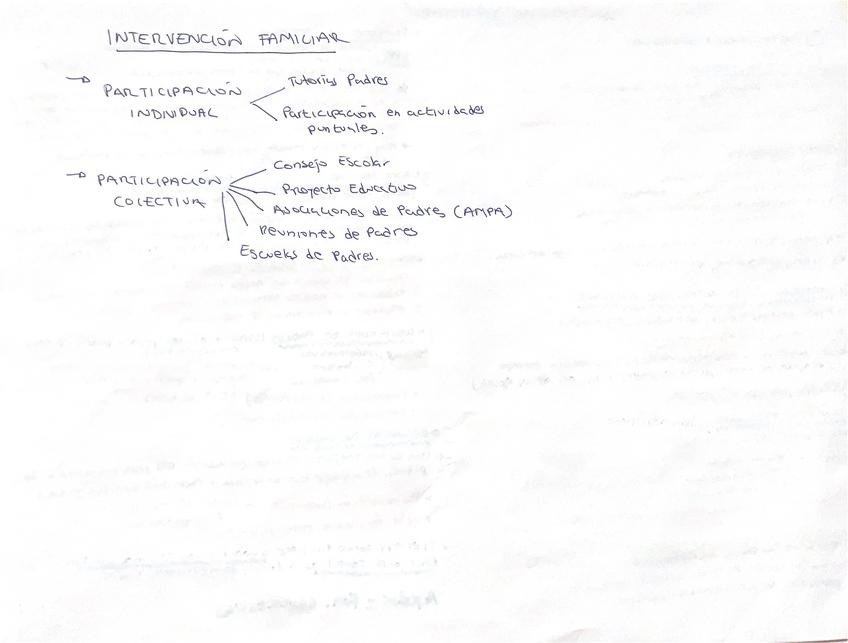 INTERVENCIÓN FAMILIAR
→ PARTICIPACIÓN
INDIVIDUAL
Tutorías Padres
Participación en actividades
puntuales.
→ PARTICIPACIÓN
COLECTIVA
Consejo Escolar
Proyecto Educativo
Asociaciones de Padres (AMPA)
Reuniones de Padres
Escuelas de Padres.